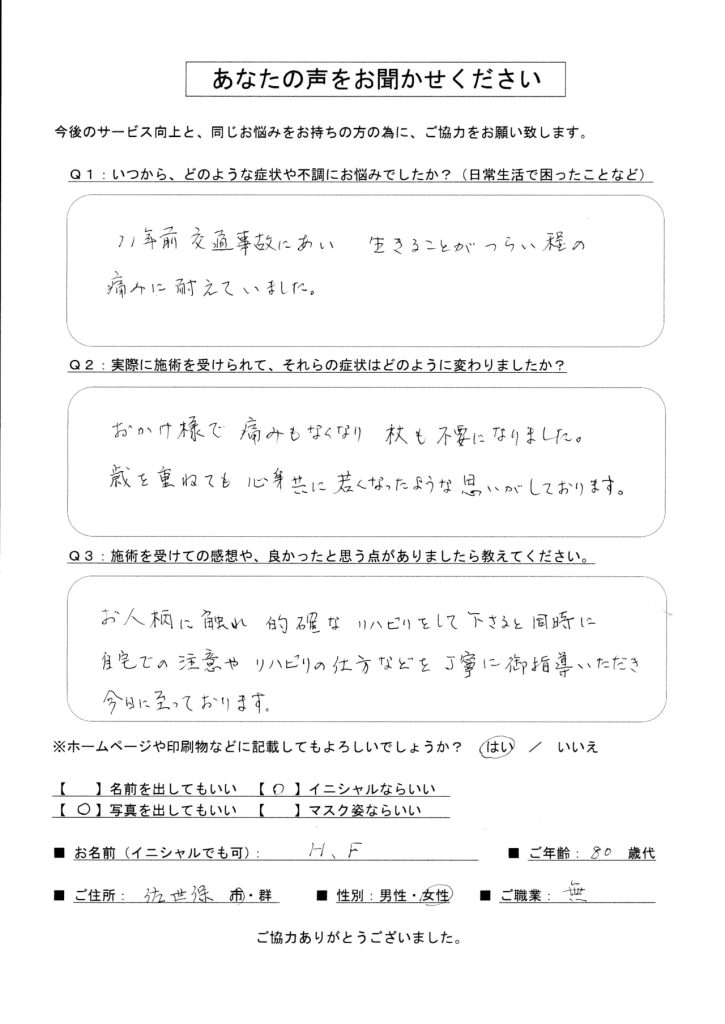 あなたの声をお聞かせください
今後のサービス向上と、同じお悩みをお持ちの方の為に、ご協力をお願い致します。
Ｑ１：いつから、どのような症状や不調にお悩みでしたか？（日常生活で困ったことなど）
11年前 交通事故にあい 生きることがつらい程の
痛みに耐えていました。
Ｑ２：実際に施術を受けられて、それらの症状はどのように変わりましたか？
おかげ様で 痛みもなくなり 杖も不要になりました。
歳を重ねても 心身共に若くなったような思いがしております。
Ｑ３：施術を受けての感想や、良かったと思う点がありましたら教えてください。
お人柄に触れ 的確な リハビリをして下さると同時に
自宅での注意や リハビリの仕方などを丁寧に御指導いただき
今日に至っております。
※ホームページや印刷物などに記載してもよろしいでしょうか？ はい ／ いいえ
【 】名前を出してもいい 【 〇 】イニシャルならいい
【 〇 】写真を出してもいい 【 】マスク姿ならいい
■ お名前（イニシャルでも可）： H、F ■ ご年齢： 80 歳代
■ ご住所： 佐世保 市・群 ■ 性別：男性・女性 ■ ご職業： 無
ご協力ありがとうございました。